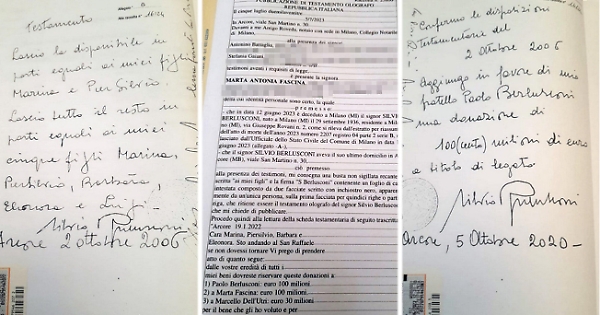 Testamento
Lascio la disponibile in
parti eguali ai miei figli
Marina e Pier Silvio.
Lascio tutto il resto in
parti eguali ai miei
cinque figli Marina,
Piersilvio, Barbara,
Eleonora e Luigi.-
Silvio Berlusconi
Arcore 2 ottobre 2006
PUBBLICAZIONE DI TESTAMENTO OLOGRAFO
REPUBBLICA ITALIANA
In Arcore, viale San Martino n. 30.
alla presenza dei
testimoni aventi i requisiti di legge.
è presente la signora
MARTA ANTONIA FASCINA,
premesso
- che in data 12 giugno 2023 è deceduto a Milano (MI) il signor SILVIO
BERLUSCONI, nato a Milano (MI) il 29 settembre 1936, residente a Milano
(MI), via Giuseppe Rovani n. 2, come si rileva dall'estratto per riassunto
dell'atto di morte dell'anno 2023 numero 2207 registro 04 parte 2 serie B,
rilasciato dall'Ufficiale dello Stato Civile del Comune di Milano in data
giugno 2023 (allegato A-);
- che il signor SILVIO BERLUSCONI aveva il suo ultimo domicilio in
core (MB), viale San Martino n. 30,
ciò premesso
alla presenza dei testimoni, mi consegna una busta non sigillata recante
scritta "ai miei figli" e la firma "S Berlusconi" contenente un foglio di
intestata composto da due facciate scritto con inchiostro nero,
mente da un'unica persona, sulla prima facciata per quindici righe o parti
riga, che ritiene essere il testamento olografo del signor Silvio Berlusconi
che mi chiede di pubblicare.
Procedo quindi alla lettura della scheda testamentaria di seguito
"Arcore 19.1.2022
Cara Marina, Piersilvio, Barbara e
Eleonora. Sto andando al San Raffaele
se non dovessi tornare Vi prego di prendere
atto di quanto segue:
dalle vostre eredità di tutti i
miei beni dovreste riservare queste donazioni a
1) Paolo Berlusconi: euro 100 milioni
2) a Marta Fascina: euro 100 milioni
3) a Marcello Dell'Utri: euro 30 milioni
per il bene che gli ho voluto e per
Confermo le disposizioni
testamentarie del
2 Ottobre 2006
Aggiungo in favore di mio
fratello Paolo Berlusconi
una donazione di
100 (cento) milioni di euro
a titolo di legato
Silvio Berlusconi
Arcore, 5 Ottobre 2020-